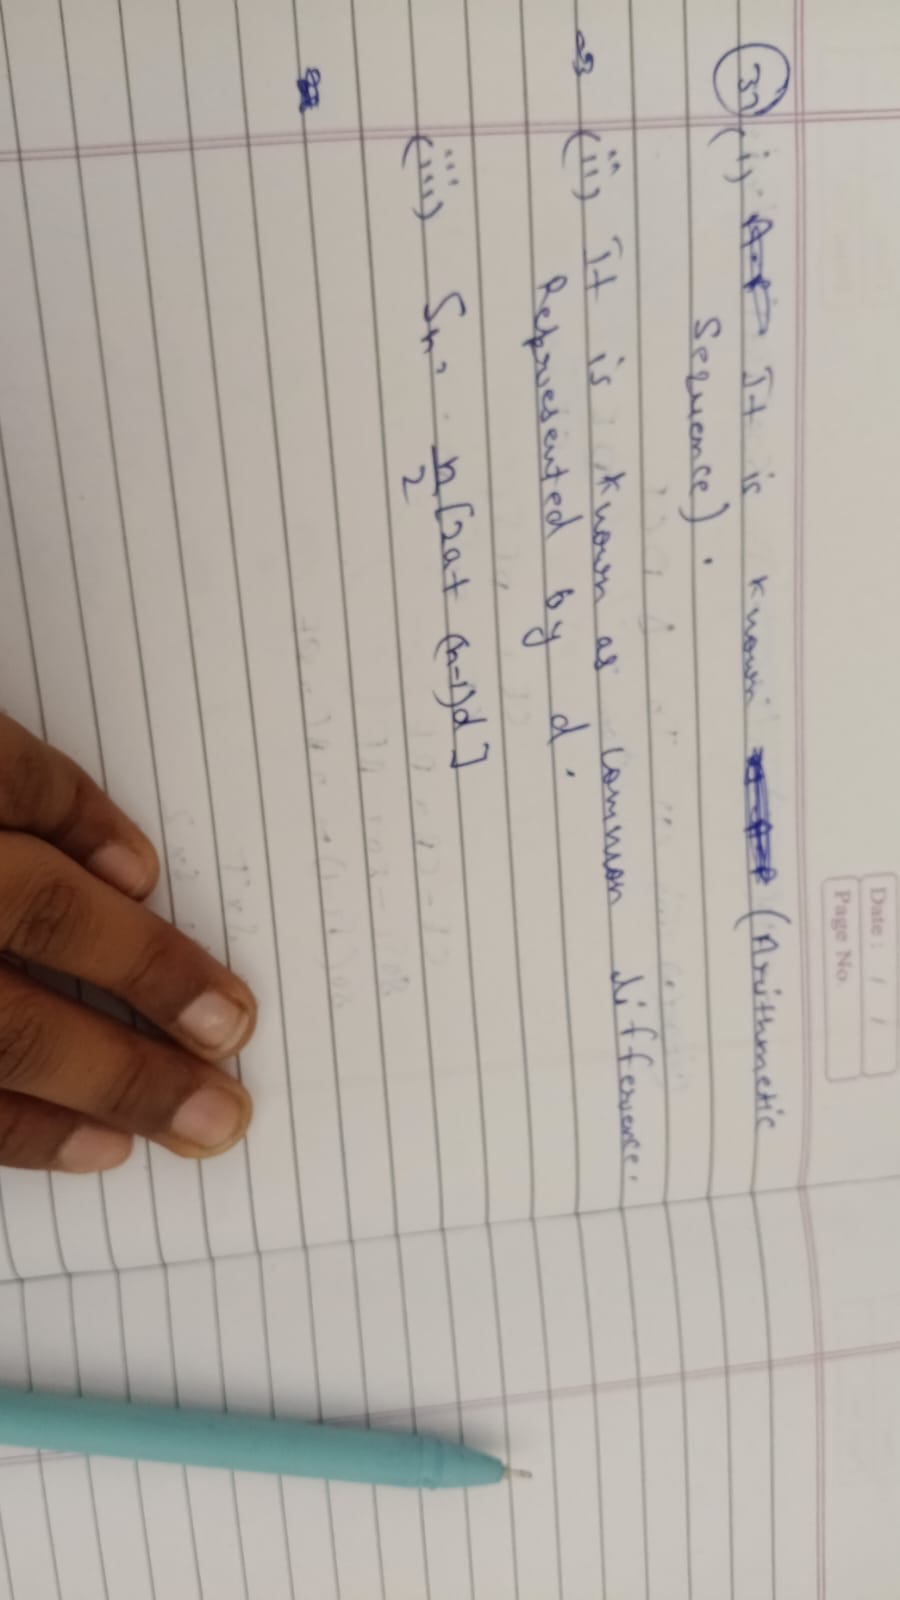 Date: / /
Page No.
37 (i) It is known (Arithmetic
Sequence).
(ii) It is known as common difference.
Represented by d.
(iii) Sn = n/2 [2a+ (n-1)d]